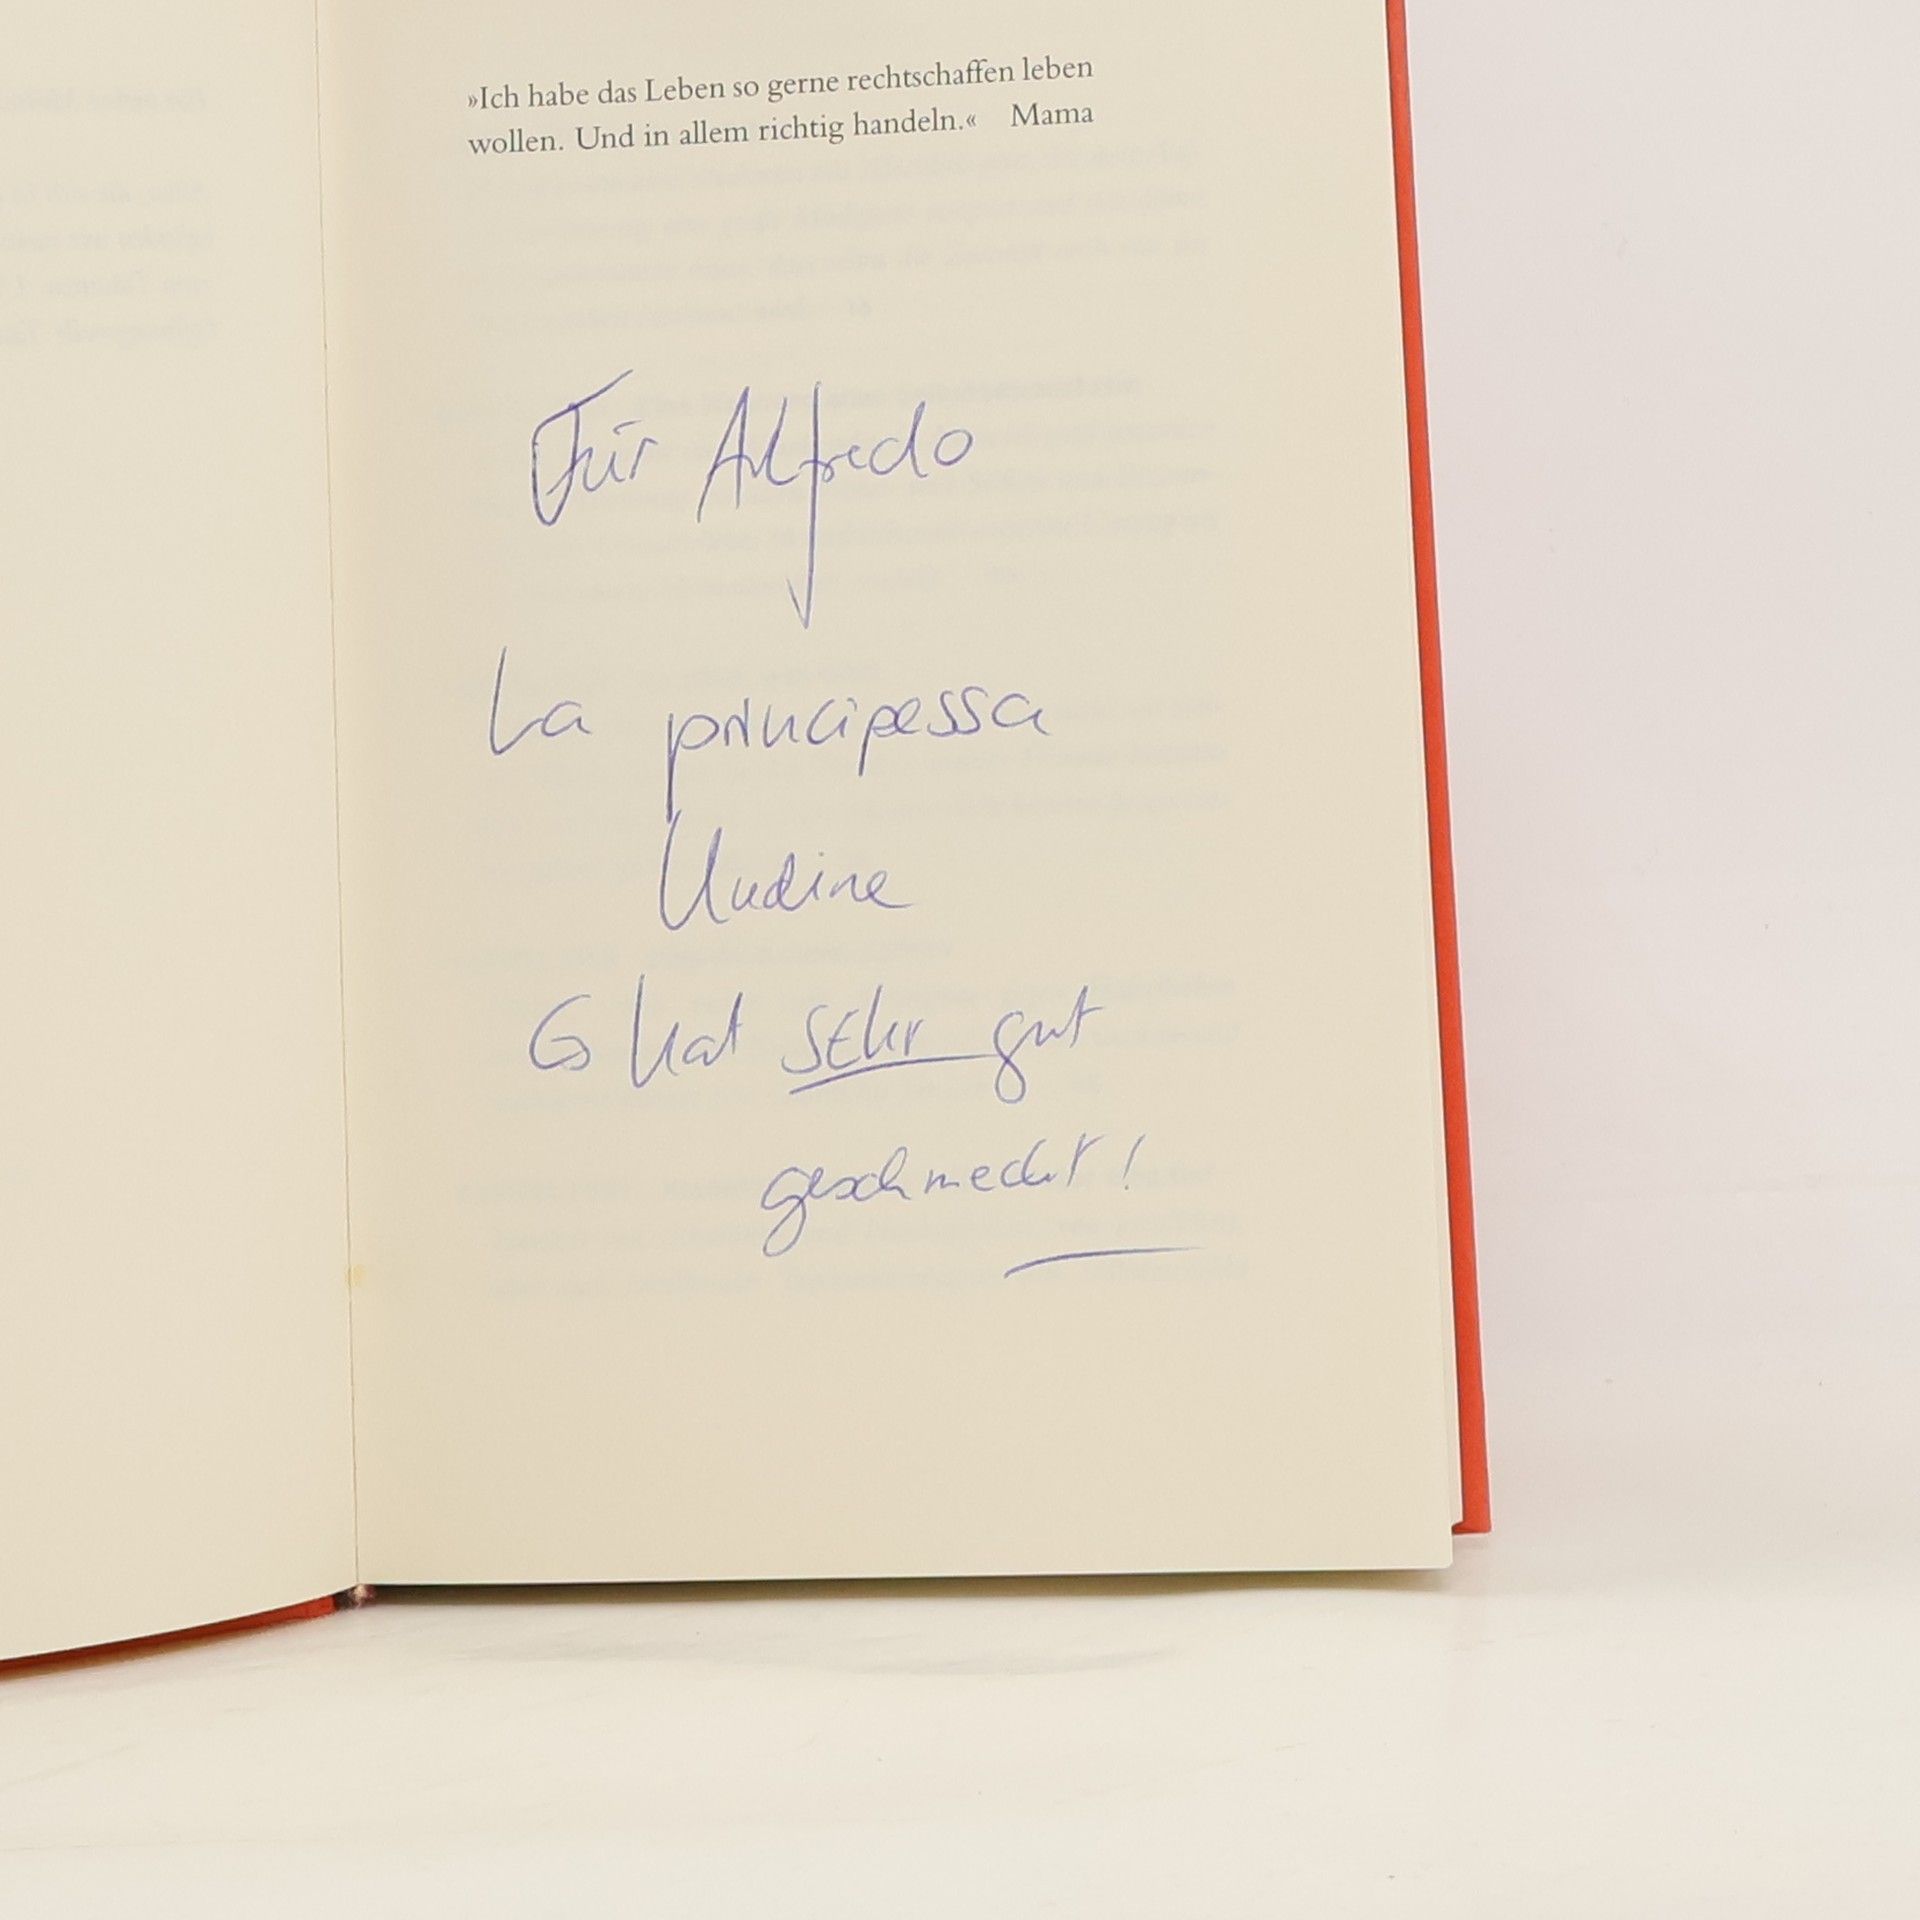 »Ich habe das Leben so gerne rechtschaffen leben
wollen. Und in allem richtig handeln.« Mama
Für Alfredo
La principessa
Undine
Es hat SEhr gut
geschmeckt!